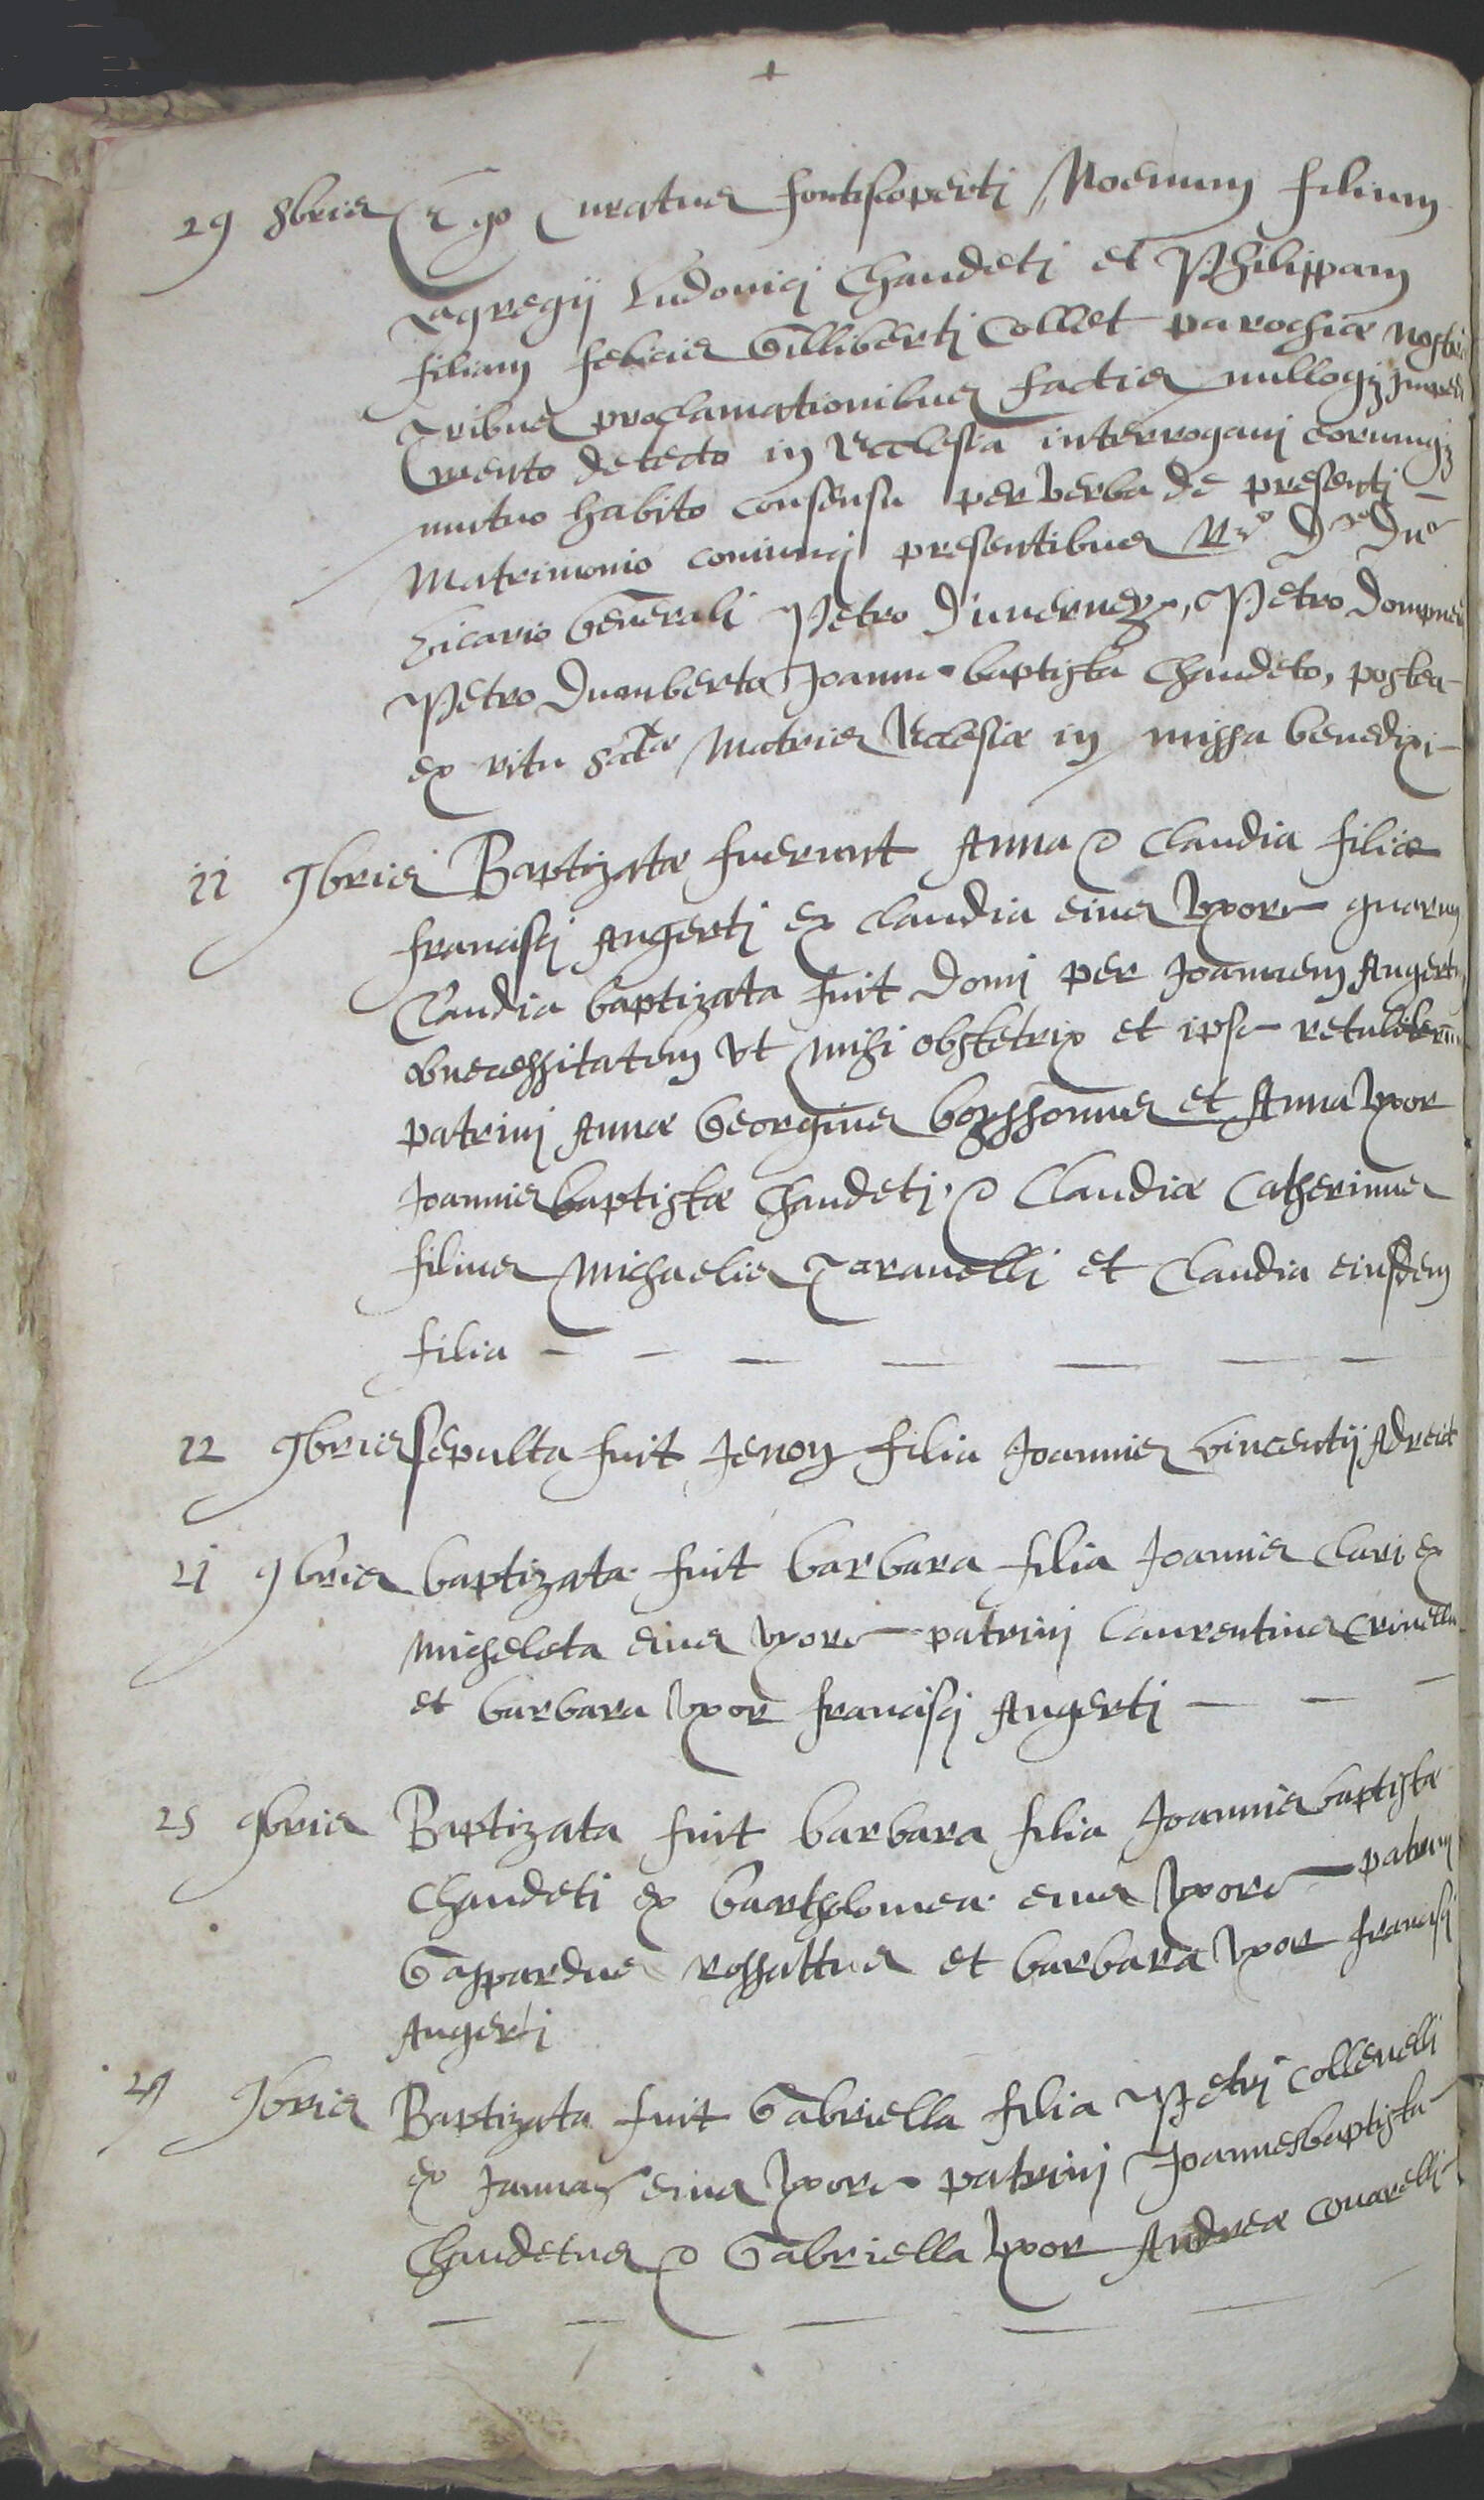 +
29 8bris Ego Curatus fontiscoperti Noenum filium
egregij Ludovici Chaudeti et Philippam
filiam felicis Gilliberti Collet parochiæ nostræ
tribus proclamationibus factis nulloq; impedi
mento detecto in Ecclesia interrogavi eorumq;
mutuo habito consensu per verba de presenti
Matrimonio coniunxi presentibus Rdo Dno Dno
vicario Generali Petro Duvernez, Petro
Petro Dumberto Joanne baptista Chaudeto, postea
ex ritu sctæ Matris Ecclesiæ in missa benedixi
11 9bris Baptizatæ fuerunt Anna & Claudia filiæ
francisci Augerti ex Claudia eius uxore quarum
Claudia baptizata fuit domi per Joannem Augerti
ob necessitatem ut mihi obstetrix et ipse retulerunt
patrini Annæ Georgius boyssonus et Anna uxor
Joannis baptistæ Chaudeti, & Claudiæ Catherinus
filius Michaelis Taravelli et Claudia eiusdem
filia
12 9bris sepulta fuit Jenon filia Joannis vincentij Adreit
21 9bris baptizata fuit barbara filia Joannis Clari ex
Micheleta eius uxore patrini Laurentius
et barbara uxor francisci Augerti
25 9bris Baptizata fuit barbara filia Joannis baptistæ
Chaudeti ex bartholomea eius uxore patrini
Gaspardus rossattus et barbara uxor francisci
Augerti
9bris Baptizata fuit Gabriella filia Petri
ex Janna eius uxore patrini Joannesbaptista
Chaudetus & Gabriella uxor Andreæ